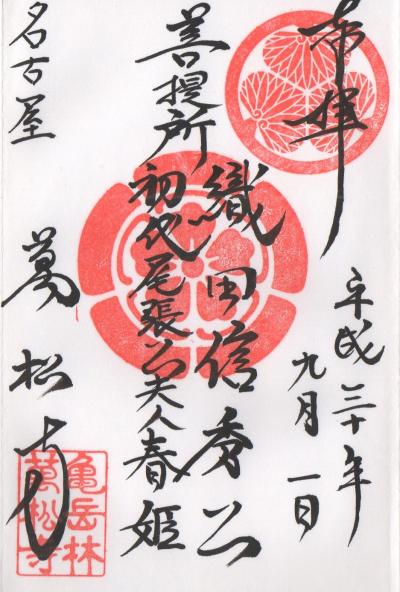 奉拝
平成三十年
九月一日
織田信秀公
菩提所
初代尾張公夫人春姫
名古屋
萬松寺
亀岳林
萬松寺